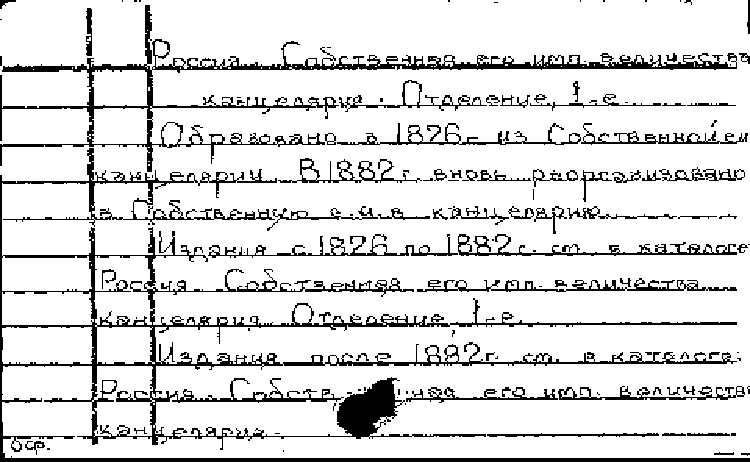 Россия. Собственная его имп. величества
канцелярия. Отделение, 1-е
Образовано в 1826г. из Собственной е.и.
канцелярии. В 1882г. вновь реорганизовано
в Собственную е.и.в. канцелярию.
Издания с 1826 по 1882г. см. в каталоге
Россия. Собственная его имп. величества
канцелярия. Отделение, 1-е.
Издания после 1882г. см. в каталоге:
Россия. его имп. величества
канцелярия.